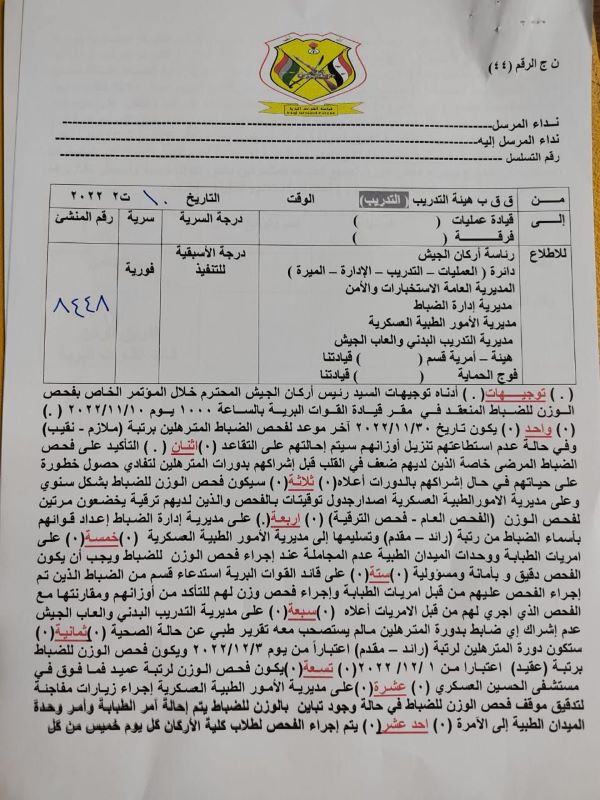 ن ج الرقم (٤٤)
قيادة القوات البرية
نداء المرسل
نداء المرسل إليه
رقم التسلسل
مــن ق ق ب هيئة التدريب (التدريب) الوقت التاريخ ١٠ ت٢ ٢٠٢٢
إلــى قيادة عمليات ( ) درجة السرية سرية رقم المنشئ
فرقــة ( )
للاطلاع رئاسة أركان الجيش درجة الأسبقية فورية ٨٤٤٨
دائرة ( العمليات – التدريب – الإدارة – الميرة ) للتنفيذ
المديرية العامة الاستخبارات والأمن
مديرية إدارة الضباط
مديرية الأمور الطبية العسكرية
مديرية التدريب البدني والعاب الجيش
هيئة – أمرية قسم ( ) قيادتنا
فوج الحماية ( ) قيادتنا
( . ) توجيهات ( . ) أدناه توجيهات السيد رئيس أركان الجيش المحترم خلال المؤتمر الخاص بفحص
الوزن للضباط المنعقد في مقر قيادة القوات البرية بالساعة ١٠٠٠ يوم ٢٠٢٢/١١/١٠ ( . )
(٠) واحد (٠) يكون تاريخ ٢٠٢٢/١١/٣٠ آخر موعد لفحص الضباط المترهلين برتبة (ملازم - نقيب)
وفي حالة عدم استطاعتهم تنزيل أوزانهم سيتم إحالتهم على التقاعد (٠) اثنان ( . ) التأكيد على فحص
الضباط المرضى خاصة الذين لديهم ضعف في القلب قبل إشراكهم بدورات المترهلين لتفادي حصول خطورة
على حياتهم في حال إشراكهم بالدورات أعلاه (٠) ثلاثة (٠) سيكون فحص الوزن للضباط بشكل سنوي
وعلى مديرية الامورالطبية العسكرية اصدارجدول توقيتات بالفحص والذين لديهم ترقية يخضعون مرتين
لفحص الوزن (الفحص العام - فحص الترقية) (٠) اربعة (.) على مديرية إدارة الضباط إعداد قوائم
بأسماء الضباط من رتبة (رائد – مقدم) وتسليمها إلى مديرية الأمور الطبية العسكرية (٠) خمسة (٠) على
امريات الطبابة ووحدات الميدان الطبية عدم المجاملة عند إجراء فحص الوزن للضباط ويجب أن يكون
الفحص دقيق و بأمانة ومسؤولية (٠) ستة (٠) على قائد القوات البرية استدعاء قسم من الضباط الذين تم
إجراء الفحص عليهم من قبل امريات الطبابة وإجراء فحص وزن لهم للتأكد من أوزانهم ومقارنتها مع
الفحص الذي اجري لهم من قبل الامريات أعلاه (٠) سبعة (٠) على مديرية التدريب البدني والعاب الجيش
عدم إشراك إي ضابط بدورة المترهلين مالم يستصحب معه تقرير طبي عن حالة الصحية (٠) ثمانية (٠)
ستكون دورة المترهلين لرتبة (رائد – مقدم) اعتباراً من يوم ٢٠٢٢/١٢/٣ ويكون فحص الوزن للضباط
برتبة (عقيد) اعتبارا من ١ /١٢/ ٢٠٢٢ (٠) تسعة (٠) يكون فحص الوزن لرتبة عميد فما فوق في
مستشفى الحسين العسكري (٠) عشرة (٠) على مديرية الأمور الطبية العسكرية إجراء زيارات مفاجئة
لتدقيق موقف فحص الوزن للضباط في حالة وجود تباين بالوزن للضباط يتم إحالة آمر الطبابة وأمر وحدة
الميدان الطبية إلى الأمرة (٠) احد عشر (٠) يتم إجراء الفحص لطلاب كلية الأركان كل يوم خميس من كل